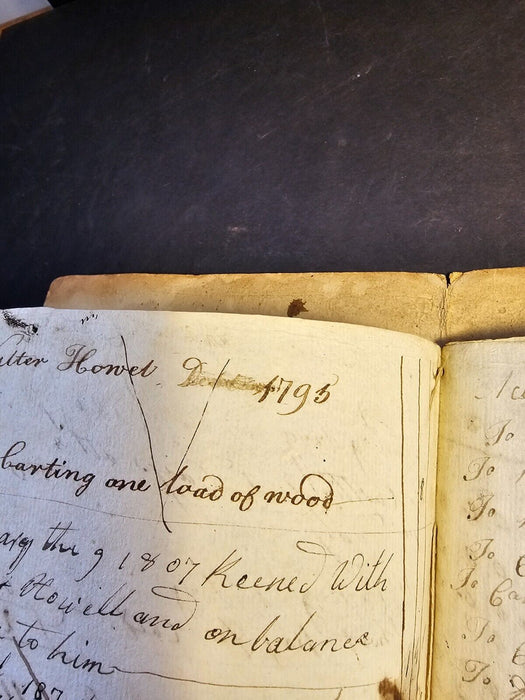 alter Howel Dr 1795
Carting one load of wood
ary the 9 1807 Reckned With
Howell and on balance
to him
187
Acc
To
To
To
To
To Ca
To
To